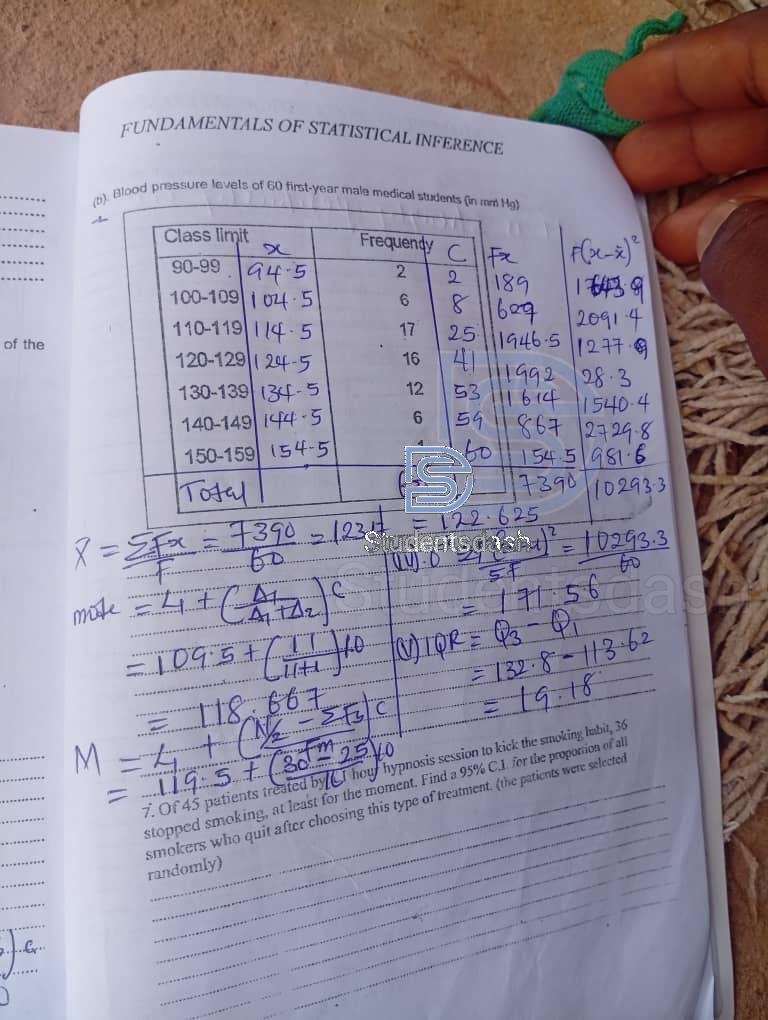 FUNDAMENTALS OF STATISTICAL INFERENCE
(b). Blood pressure levels of 60 first-year male medical students (in mm Hg)
Class limit x Frequency C Fx F(x-x̄)²
90-99 94.5 2 2 189
100-109 104.5 6 8 2091.4
of the
110-119 114.5 17 25 1946.5 1277.9
120-129 124.5 16 41 1992 28.3
130-139 134.5 12 53 1614 1540.4
140-149 144.5 6 59 867 2729.8
150-159 154.5 1 60 154.5 981.6
Total 7390 10293.3
x̄ = ΣFx/F = 7390/60 = 123.17
= 122.625
Studentsdash
= 10293.3/60
mode = L1 + (Δ1/Δ1+Δ2)C
= 171.56
= 109.5 + (11/11+1)10
(V) IQR = Q3 - Q1
= 132.8 - 113.62
= 118.667
= 19.18
M = L1 + (N/2 - ΣFB/Fm)C
= 119.5 + (30 - 25/16)10
7. Of 45 patients treated by hour hypnosis session to kick the smoking habit, 36
stopped smoking, at least for the moment. Find a 95% C.I. for the proportion of all
smokers who quit after choosing this type of treatment. (the patients were selected
randomly)